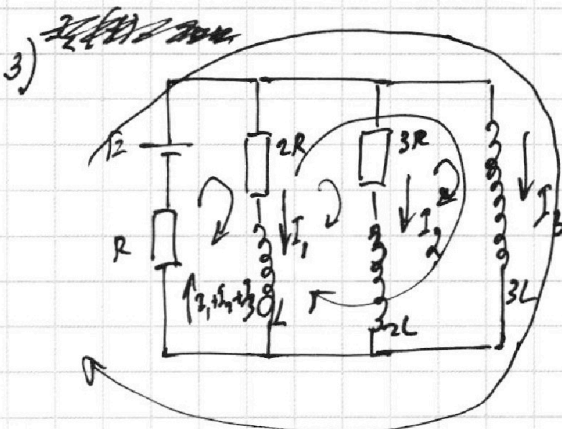 3)
2R 3R
R I₁ I₂ I₃
I₁+I₂+I₃ L 2L 3L